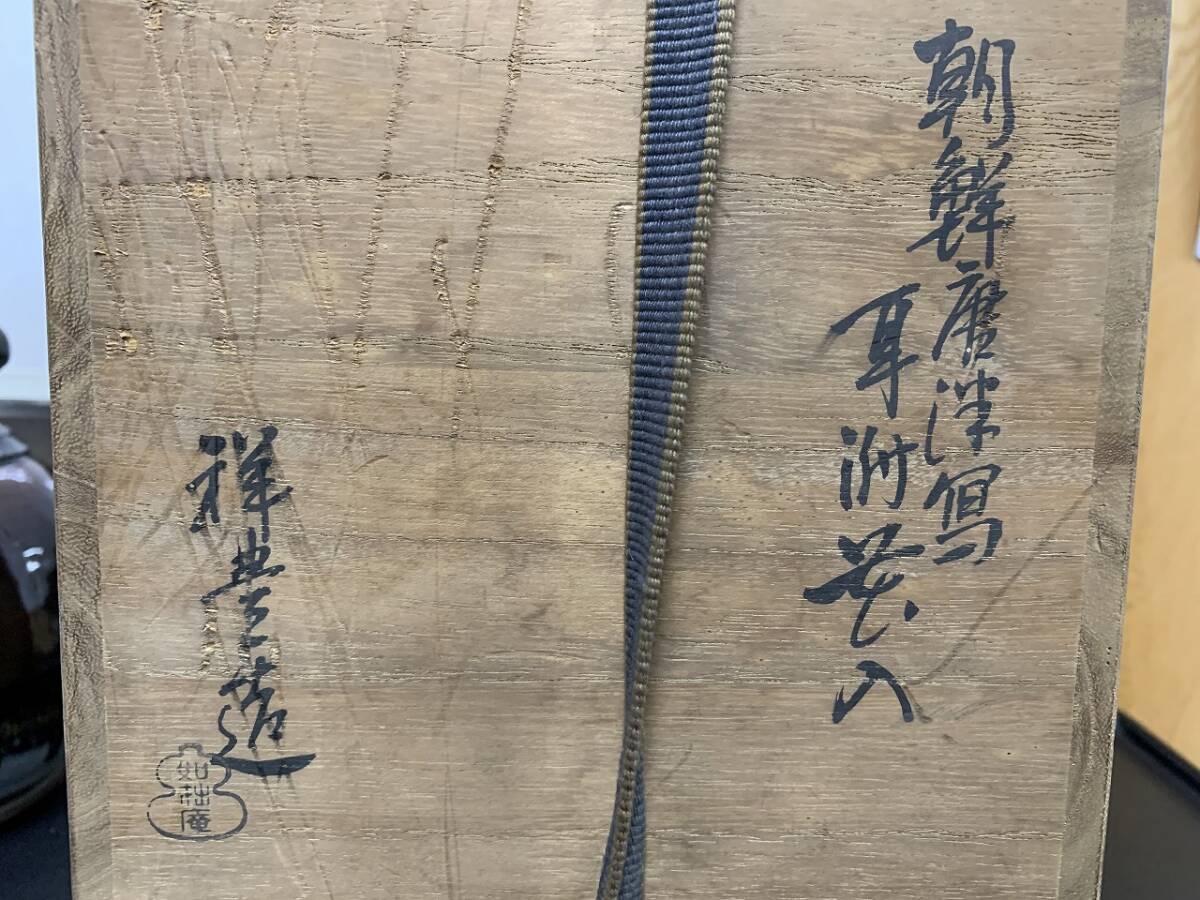 朝鮮唐津写
耳附花入
祥豊造
如拙庵